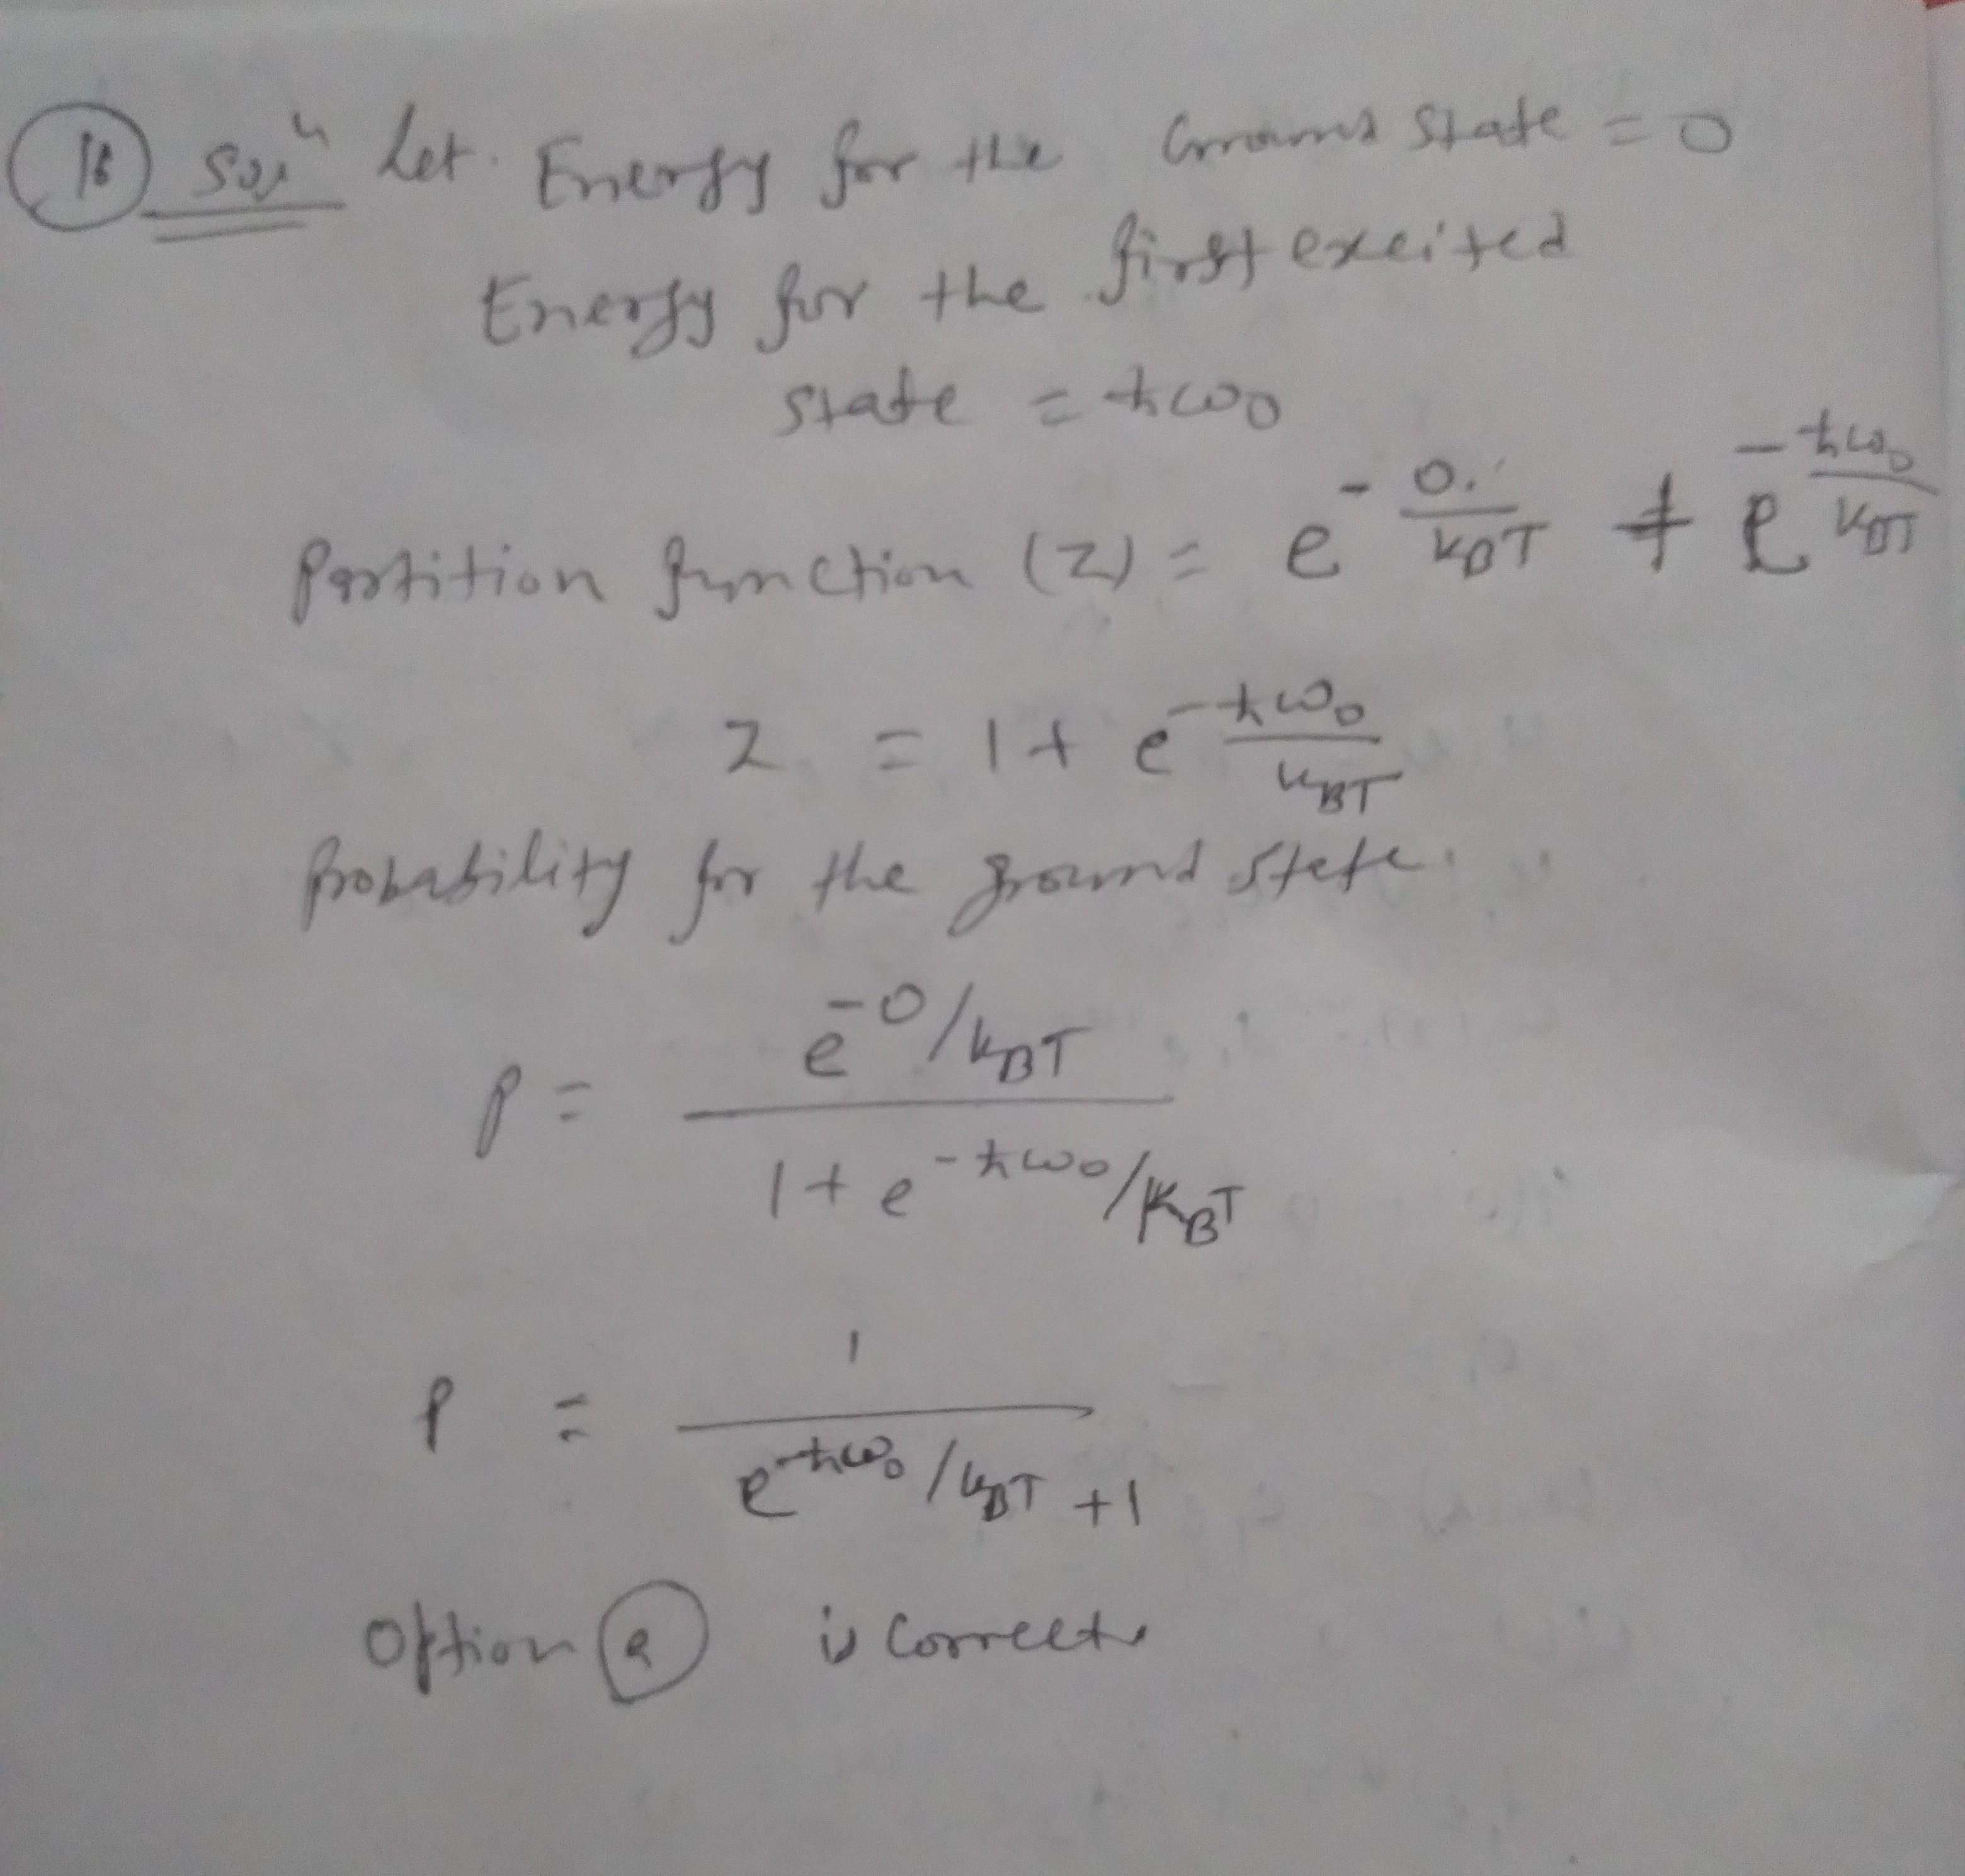 16 Solⁿ Let. Energy for the Ground State = 0
Energy for the first excited
state = ħω₀
Partition function (Z) = e^(-0/k_BT) + e^(-ħω₀/k_BT)
Z = 1 + e^(-ħω₀/k_BT)
Probability for the ground state.
P = e^(-0/k_BT) / (1 + e^(-ħω₀/k_BT))
P = 1 / (e^(-ħω₀/k_BT) + 1)
Option (a) is correct.